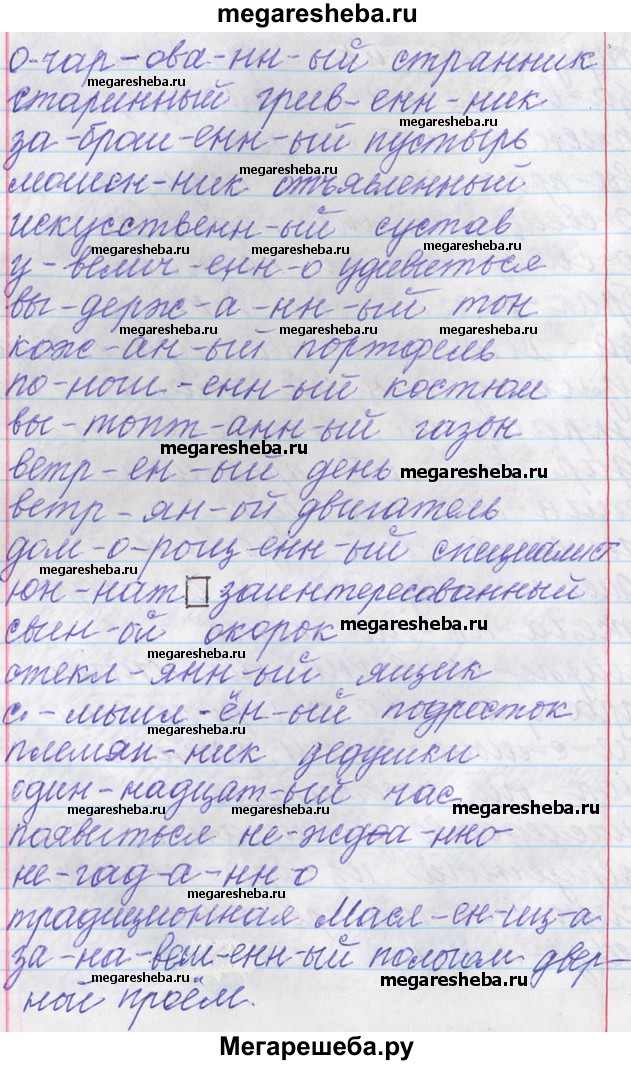 megaresheba.ru
о-чар-ова-нн-ый странник
megaresheba.ru
старинный грив-енн-ник
megaresheba.ru
за-брош-енн-ый пустырь
megaresheba.ru
мошен-ник отъявленный
искусственн-ый сустав
megaresheba.ru megaresheba.ru megaresheba.ru
у-велич-енн-о удивиться
вы-держ-а-нн-ый тон
megaresheba.ru megaresheba.ru megaresheba.ru
кож-ан-ый портфель
по-нош-енн-ый костюм
вы-топт-анн-ый газон
megaresheba.ru
ветр-ен-ый день megaresheba.ru
ветр-ян-ой двигатель
дом-о-рощ-енн-ый специалист
megaresheba.ru
юн-нат заинтересованный
свин-ой окорок megaresheba.ru
megaresheba.ru
стекл-янн-ый ящик
с-мышл-ён-ый подросток
megaresheba.ru
племян-ник дедушки
один-надцат-ый час
megaresheba.ru megaresheba.ru megaresheba.ru
появиться не-жда-нно
не-гад-а-нн-о
megaresheba.ru
традиционная Масл-ен-иц-а
за-на-веш-енный пологом двер-
megaresheba.ru megaresheba.ru
ной проём.
Мегарешеба.ру